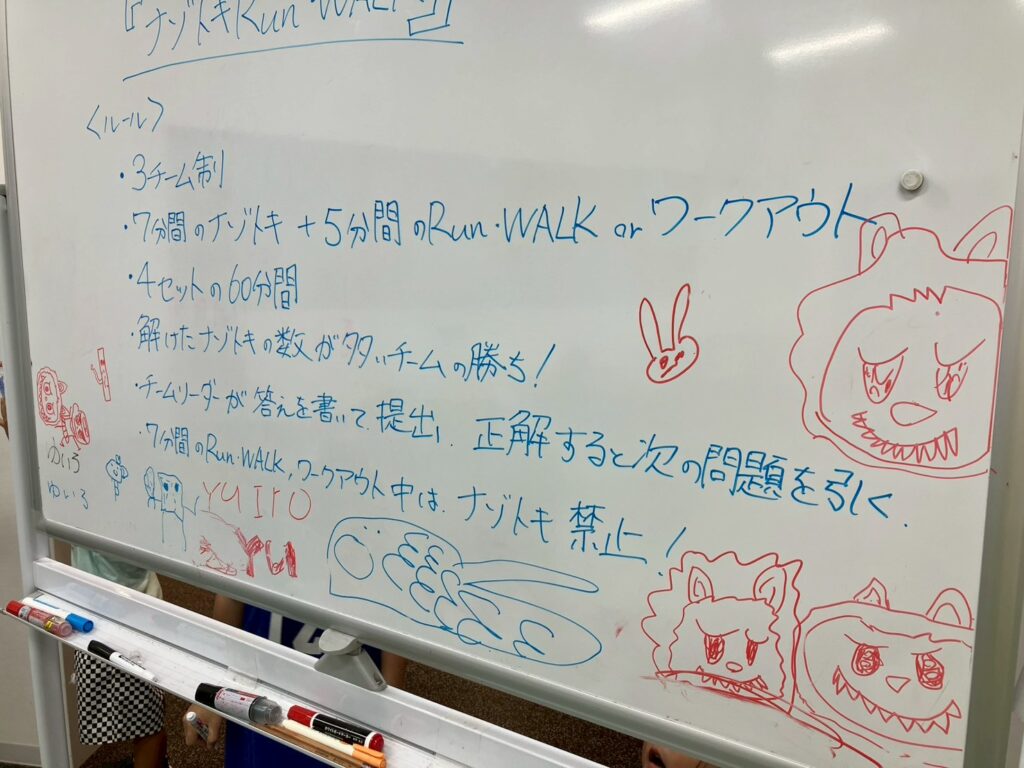 『ナゾトキRun・WALK』
〈ルール〉
・3チーム制
・7分間のナゾトキ + 5分間のRun・WALK or ワークアウト
・4セットの60分間
・解けたナゾトキの数が多いチームの勝ち!
・チームリーダーが答えを書いて提出し、正解すると次の問題を引く.
・7分間のRun・WALK,ワークアウト中は、ナゾトキ禁止!
ゆいろ
ゆいろ
YUIrO
Yu